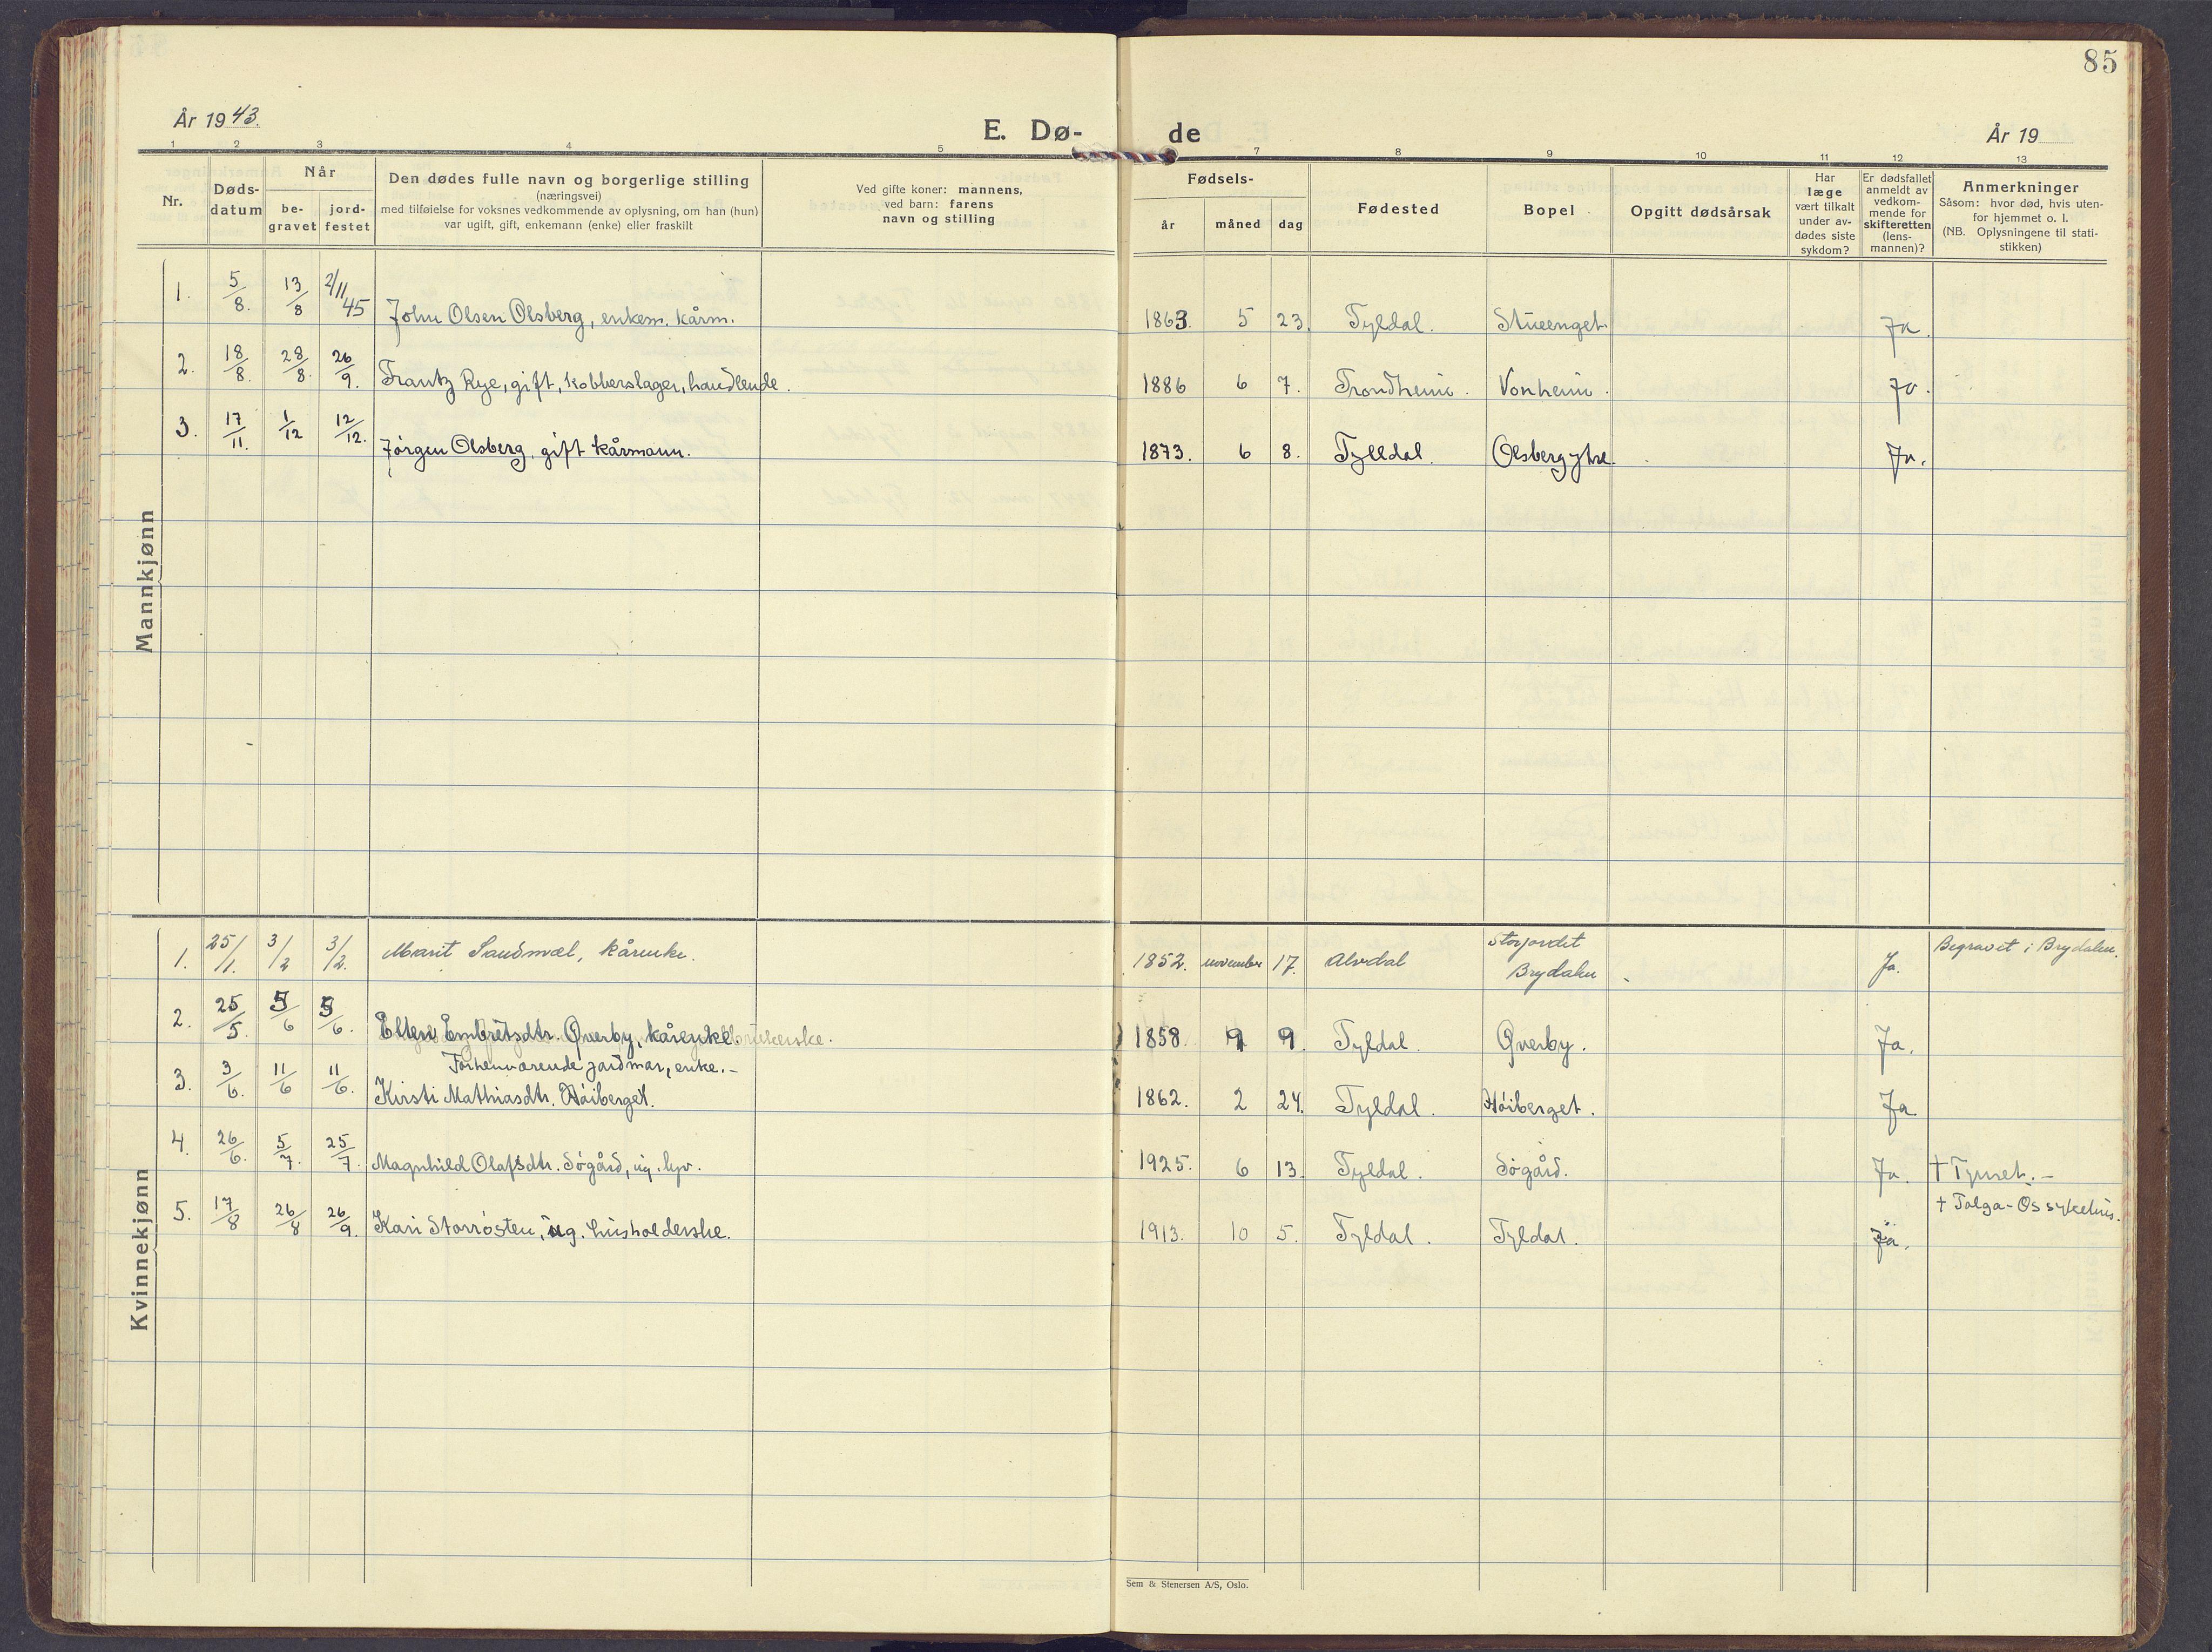 85
År 1943.
E. Dø-
de
År 19
1 2 3 4 5 7 8 9 10 11 12 13
Nr.
Døds-
datum
Når
be-
gravet
jord-
festet
Den dødes fulle navn og borgerlige stilling
(næringsvei)
med tilføielse for voksnes vedkommende av oplysning, om han (hun)
var ugift, gift, enkemann (enke) eller fraskilt
Ved gifte koner: mannens,
ved barn: farens
navn og stilling
Fødsels-
år måned dag
Fødested
Bopel
Opgitt dødsårsak
Har
læge
vært tilkalt
under av-
dødes siste
sykdom?
Er dødsfallet
anmeldt av
vedkom-
mende for
skifteretten
(lens-
mannen)?
Anmerkninger
Såsom: hvor død, hvis uten-
for hjemmet o. l.
(NB. Oplysningene til stati-
stikken)
Mannkjønn
1. 5/8. 13/8 2/11 45 John Olsen Olsberg, enkem. kårm. 1863. 5 23. Tyldal. Stueenget. Ja.
2. 18/8. 28/8. 26/9. Frantz Rye, gift, kobberslager, handlende. 1886 6 7. Trondheim. Vonheim. Ja.
3. 17/11. 1/12 12/12. Jörgen Olsberg, gift kårmann. 1873. 6 8. Tylldal. Olsberg ytre. Ja.
Kvinnekjønn
1. 25/1. 3/2 3/2. Marit Sandmæl, kårenke. 1852. november 17. Alvdal Storjordet Brydalen Ja. Begravet i Brydalen.
2. 25/5. 5/6 5/6. Ellen Embretsdtr. Qverby, kårenke. 1858. 9 9. Tyldal. Qverby. Ja.
Forhenværende gardmar, enke.-
3. 3/6. 11/6 11/6. Kirsti Mathiasdtr. Höiberget. 1862. 2 24. Tyldal. Höiberget. Ja.
4. 26/6. 5/7. 25/7. Magnhild Olafsdtr. Sögård, ug. lyv. 1925. 6 13. Tyldal. Sögård. Ja. † Tynset.-
5. 17/8 26/8 26/9. Kari Storrösten, ug. husholderske. 1913. 10 5. Tyldal. Tyldal. Ja. † Tolga-Os sykehus.
Sem & Stenersen A/S, Oslo.